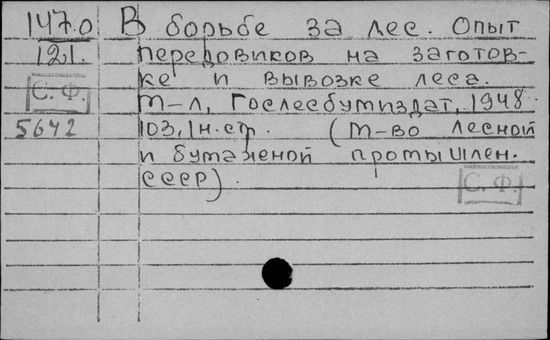 147.0 В борьбе за лес. Опыт
12.1. передовиков на заготов-
ке и вывозке леса.
С. Ф.
М-Л, Гослесбумиздат, 1948
5642 103,1н.стр. (М-во лесной
и бумаженой промышлен.
СССР).
С. Ф.